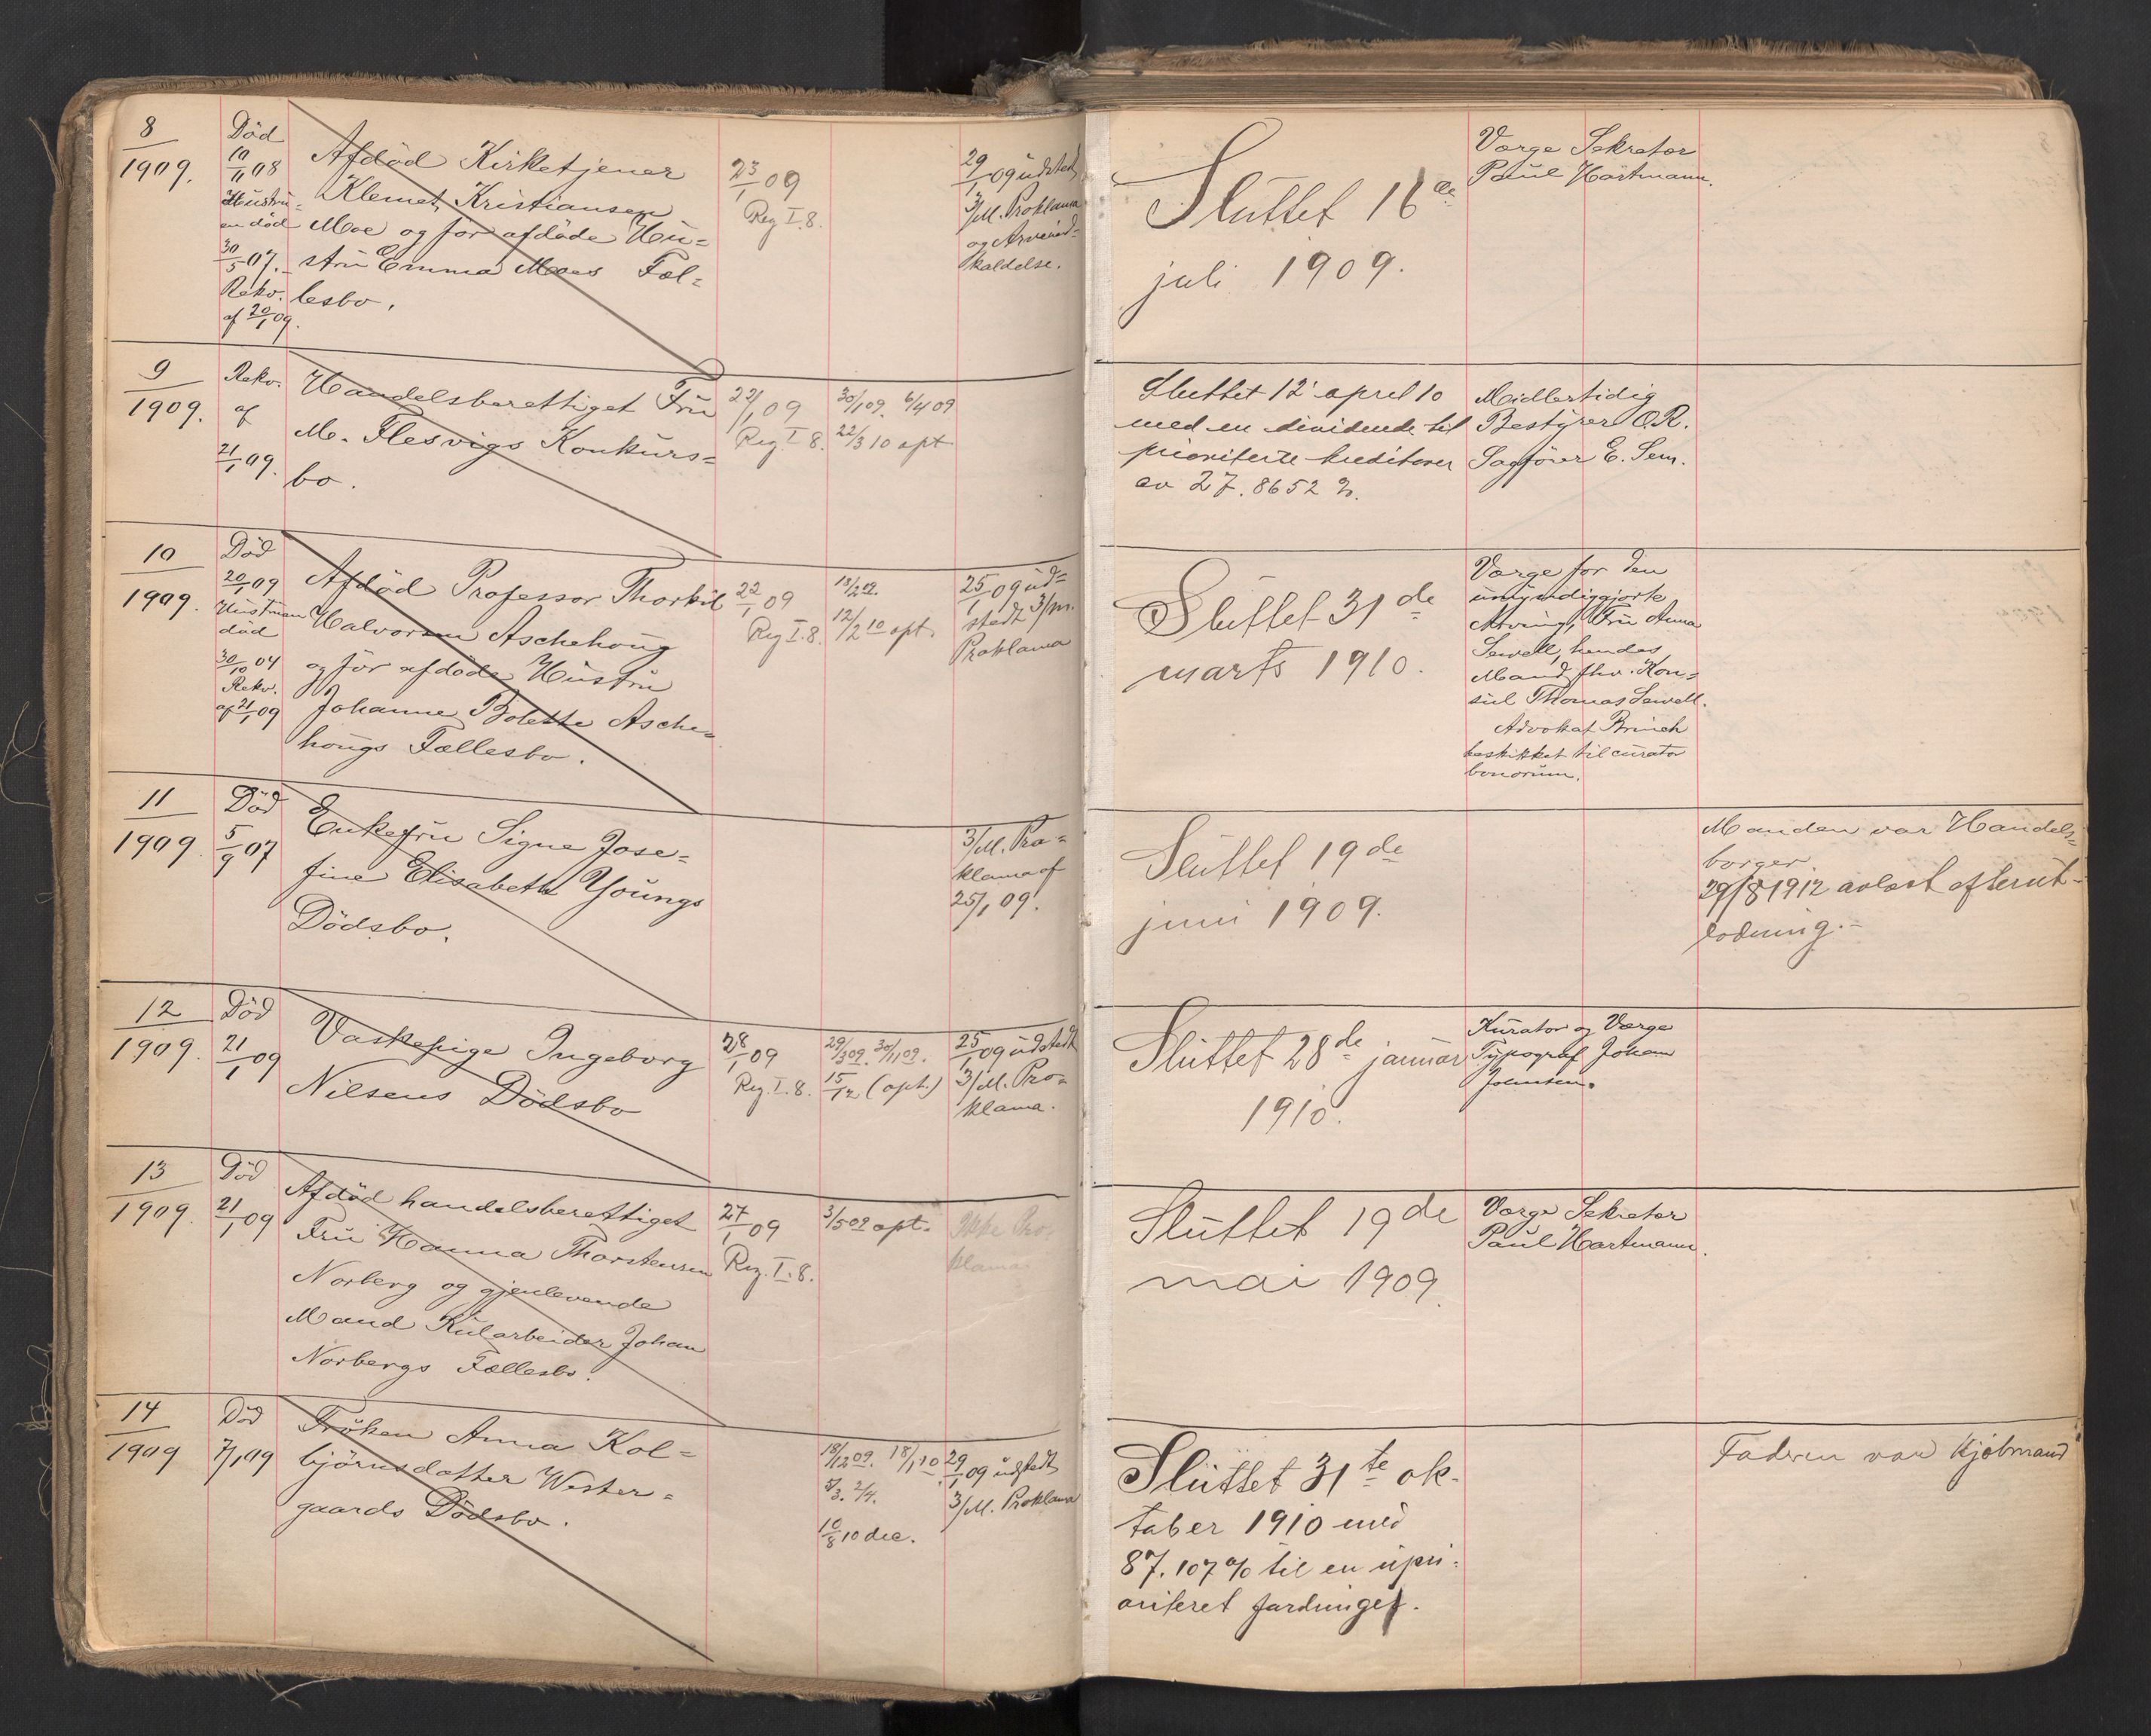 8
1909.
Död
10/11 08
Hustru-
en död
30/5 07.
Rekv.
af 20/1 09.
Afdöd Kirketjener
Klemet Kristiansen
Moe og før afdöde Hu-
stru Emma Moes Fæl-
lesbo.
23/1 09
Reg I. 8.
29/1 09 udstedt
3/M. Proklama
og Arveind-
kaldelse.
Sluttet 16de
juli 1909.
Værge Sekretær
Paul Hartmann.
9
1909.
Rekv.
af
21/1 09.
Handelsberettiget Fru
M. Flesvigs Konkurs-
bo.
22/1 09
Reg I 8.
30/1 09. 6/4 09
22/3 10 opt
Sluttet 12' april 10
med en dividende til
prioriterte kreditorer
av 27.8652 %.
Midlertidig
Bestyrer O.R.
Sagfører E. Sem.
10
1909.
Död
20/1 09
Hustruen
död
30/10 04
Rekv.
af 21/1 09
Afdöd Professor Thorkil
Halvorsen Aschehoug
og før afdöde Hustru
Johanne Bolette Asche-
hougs Fællesbo.
22/1 09
Reg I. 8.
12/2 10 opt.
25/1 09 ud-
stedt 3/m.
Proklama
Sluttet 31de
marts 1910.
Værge for den
umyndiggjorte
Arving, Fru Anna
Sewell, hendes
Mand fhv. Kon-
sul Thomas Sewell.
Advokat Brinch
beskikket til curator
bonorum.
11
1909.
Död
5/9 07
Enkefru Signe Jose-
fine Elisabeth Youngs
Dödsbo.
3/M. Pro-
klama af
25/1 09.
Sluttet 19de
juni 1909.
Manden var Handels-
borger
29/8 1912 avlæst efterut-
lodning.-
12
1909.
Död
21/1 09
Vaskepige Ingeborg
Nilsens Dödsbo
28/1 09
Reg. I. 8.
29/3 09. 30/11 09.
15/12 (opt.)
25/1 09 udstedt
3/M. Pro-
klama.
Sluttet 28de januar
1910.
Kurator og Værge
Typograf Johan
Johnsen.
13
1909.
Död
21/1 09
Afdöd handelsberettiget
Fru Hanna Thorstensen
Norberg og gjenlevende
Mand Kularbeider Johan
Norbergs Fællesbo.
27/1 09
Reg. I. 8.
3/5 09 opt.
Ikke Pro-
klama.
Sluttet 19de
mai 1909.
Værge Sekretær
Paul Hartmann.
14
1909
Död
7/1 09
Fröken Anna Kol-
björnsdatter Wester-
gaards Dödsbo.
18/12 09. 18/1 10.
10/8 10 dec.
29/1 09 udstedt
3/M. Proklama
Sluttet 31te ok-
tober 1910 med
87.107% til en upri-
oriteret fordringer.
Faderen var Kjöbmand